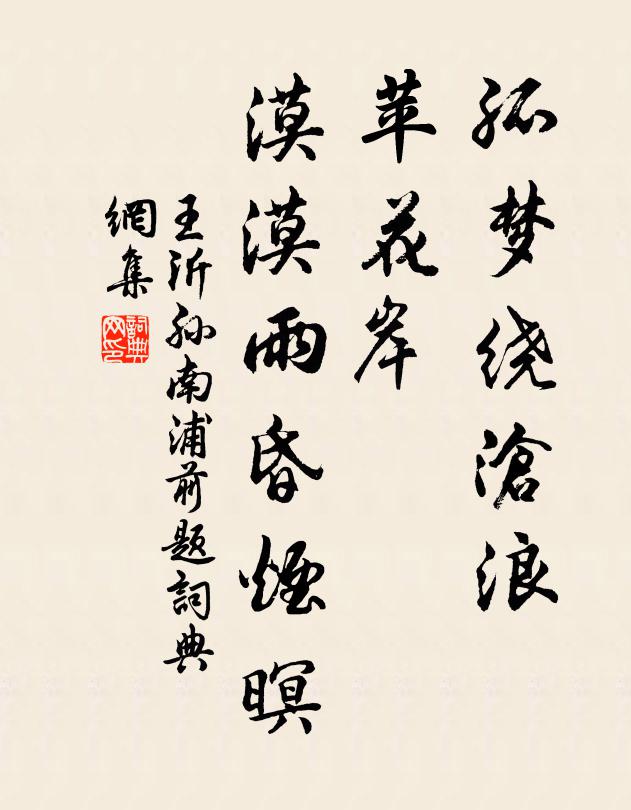 孤梦绕滄浪
苹花岸
漠漠雨昏煙暝
王沂孙南浦前题詞典
網集
詞典
网印